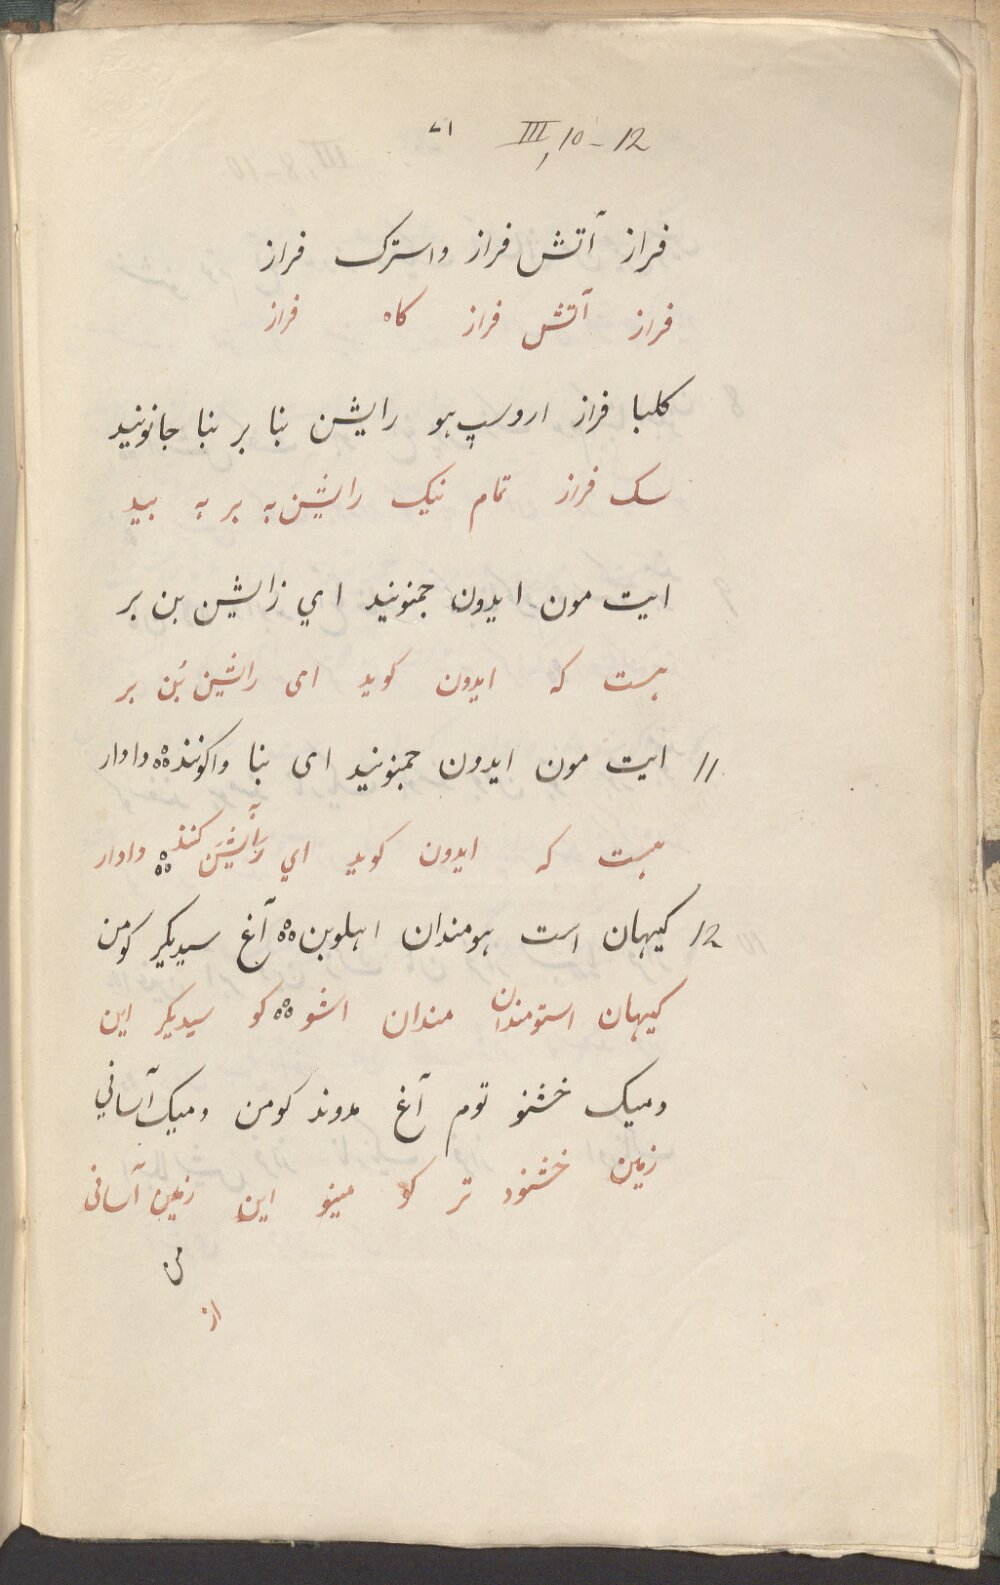 ۷۱ III, 10-12
فراز آتش فراز واسترک فراز
فراز آتش فراز کاه فراز
کلبا فراز اروسپ هو رایشن بنا بر بنا جانونید
سک فراز تمام نیک رایشن به بر به بید
ایت مون ایدون جمنونید ای زایشن بن بر
هست که ایدون کوید ای رایشن بُن بر
11 ایت مون ایدون جمنونید ای بنا واکونند دادار
هست که ایدون کوید اي رایشن کنند دادار
12 کیهان است هومندان اهلوبن آغ سیدیکر کومن
کیهان استومندان مندان اشو کو سیدیکر این
دمیک خشنو توم آغ مدوند کومن دمیک آسانی
زمین خشنود تر کو مینو این زمین آسانی
من
از